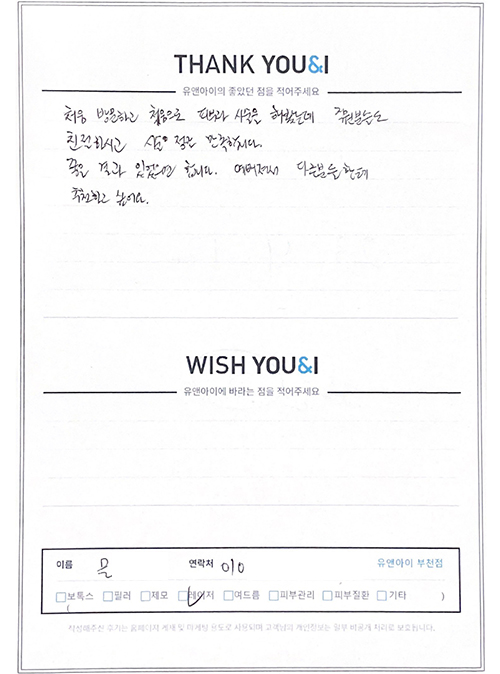 THANK YOU&I
유앤아이의 좋았던 점을 적어주세요
처음 방문하고 처음으로 피부과 시술을 해봤는데 직원분들도
친절하시고 정도 만족합니다.
좋은 결과 있었으면 합니다. 다른분들한테
추천하고 싶어요.
WISH YOU&I
유앤아이에 바라는 점을 적어주세요
이름 연락처 010 유앤아이 부천점
보톡스 필러 제모 레이저 여드름 피부관리 피부질환 기타 )
(
작성해주신 후기는 홈페이지 게재 및 마케팅 용도로 사용되며 고객님의 개인정보는 일부 비공개 처리로 보호됩니다.